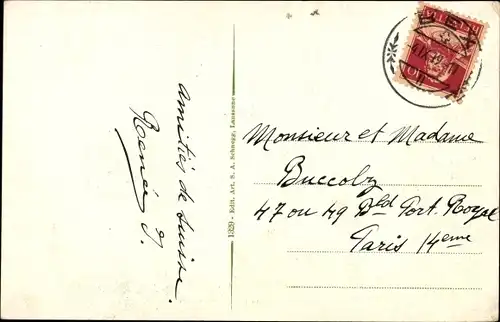 Amitiés de Suisse.
Renée J.
1329 - Edit. Art. S. A. Schnegg, Lausanne
BEX
Monsieur et Madame
Buccoly
47 ou 49 Bld Port. Royal
Paris 14eme